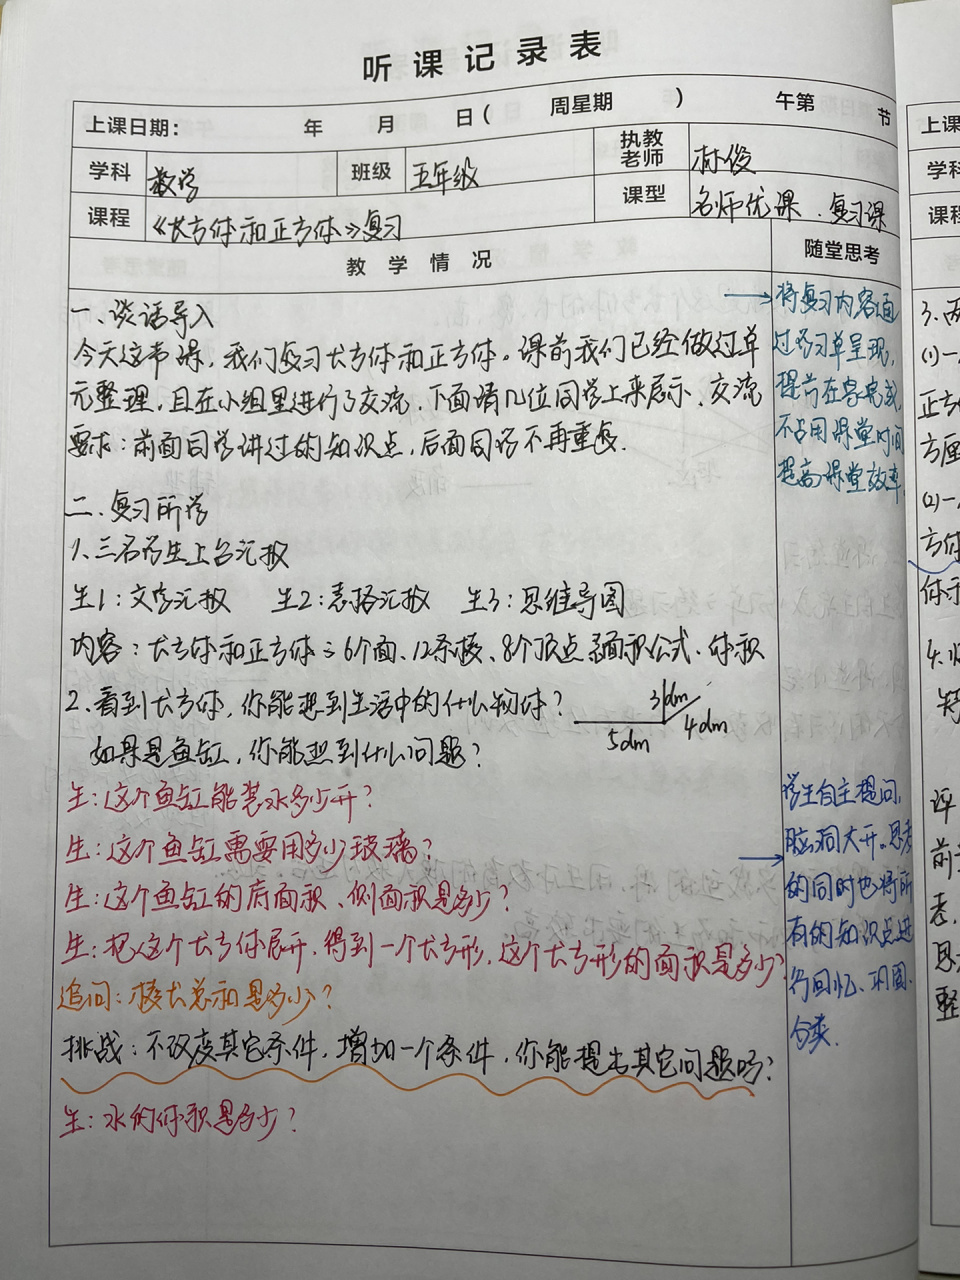 听课记录表
上课日期： 年 月 日（ 周星期 ） 午第 节
学科 数学 班级 五年级 执教老师 林俊
课程 《长方体和正方体》复习 课型 名师优课、复习课
教学情况 随堂思考
一、谈话导入
今天这节课，我们复习长方体和正方体。课前我们已经做过单
元整理，且在小组里进行了交流，下面请几位同学上来展示、交流
要求：前面同学讲过的知识点，后面同学不再重复.
二、复习所学
1、三名学生上台汇报
生1：文字汇报 生2：表格汇报 生3：思维导图
内容：长方体和正方体：6个面、12条棱、8个顶点 面积公式、体积
2、看到长方体，你能想到生活中的什么物体？
3dm
4dm
5dm
如果是鱼缸，你能想到什么问题？
生：这个鱼缸能装水多少升？
生：这个鱼缸需要用多少玻璃？
生：这个鱼缸的底面积、侧面积是多少？
生：把这个长方体展开，得到一个长方形，这个长方形的面积是多少？
追问：棱长总和是多少？
挑战：不改变其它条件，增加一个条件，你能提出其它问题吗？
生：水的体积是多少？
将复习内容通
过学习单呈现，
提前在家完成，
不占用课堂时间
提高课堂效率
学生自主提问，
脑洞大开。思考
的同时也将所
有的知识点进
行回忆、巩固、
归类.
上课
学科
课程
3、两
(1)一
正方
方厘
(2)一
方体
体于
4、
评
前
思
整